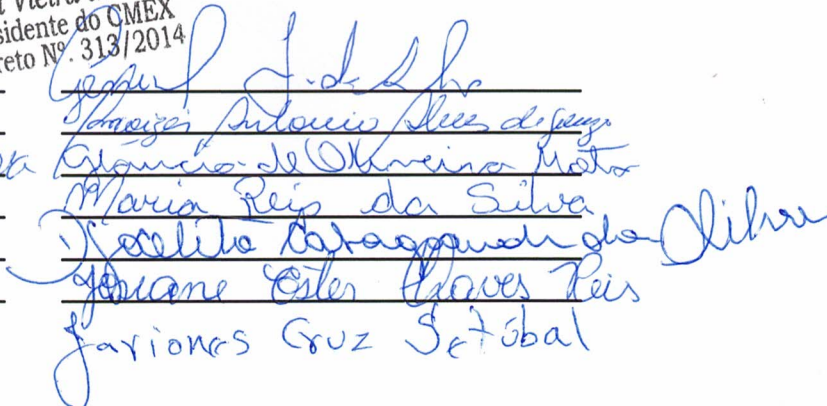 Vieira
sidente do CMEX
reto Nº. 313/2014
J. da Silva
Antonio Alves de Souza
Gláucia de Oliveira Mato
Maria Reis da Silva
Joselita da Silva
Josiane Ester Chaves Reis
Jariones Cruz Setúbal